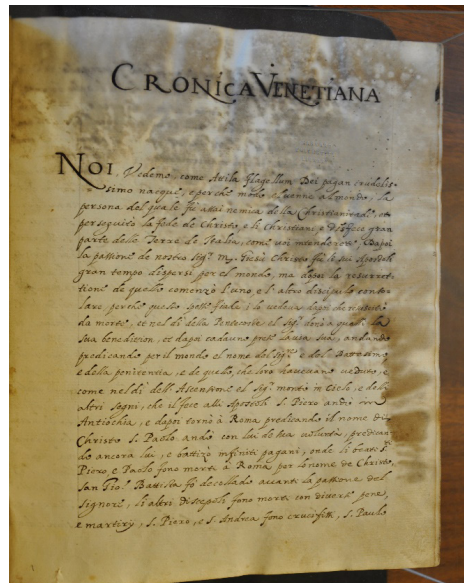 CRONICA VENETIANA
NOI, Vedemo, come Attila flagellum Dei pagan crudelis-
simo nacque, e perche modo el venne al mondo, la
persona del quale fù assai nemica della Christianitade, et
perseguitò la fede de Christo, e li Christiani, e disfece gran
parte delle Terre de Italia, come voi intenderete, Dapoi
la passione de nostro sigr. m. Jesù Christo fù li sui Apostoli
gran tempo dispersi per el mondo, ma dapoi la resurret-
tione de quello comenzò l'uno, e l'altro discipulo
da morte, et nel dì della Pentecoste el sigr. donò a quelli la
sua benedition, et dapoi cadauno andando
predicando per il mondo el nome del sigr. e del Battesimo
e della penitentia, e de quello, che loro haveuano veduto, e
come nel dì dell' Ascensione el sigr. montò in Cielo, e delli
altri segni, che il fece alli Apostoli. S. Piero andò in
Antiochia, e dapoi tornò à Roma predicando il nome di
Christo. S. Paolo andò con lui de sua voluntà, predican-
do ancora lui, e battizò infiniti pagani, onde li beati S.
Piero, e Paolo fono morti à Roma, per lo nome de Christo,
San Gio. Battista fò decollado avanti la passione del
Signore, li altri discepoli fono morti con diverse pene,
e martirÿ, S. Piero, e S. Andrea fono crucifissi, S. Paulo